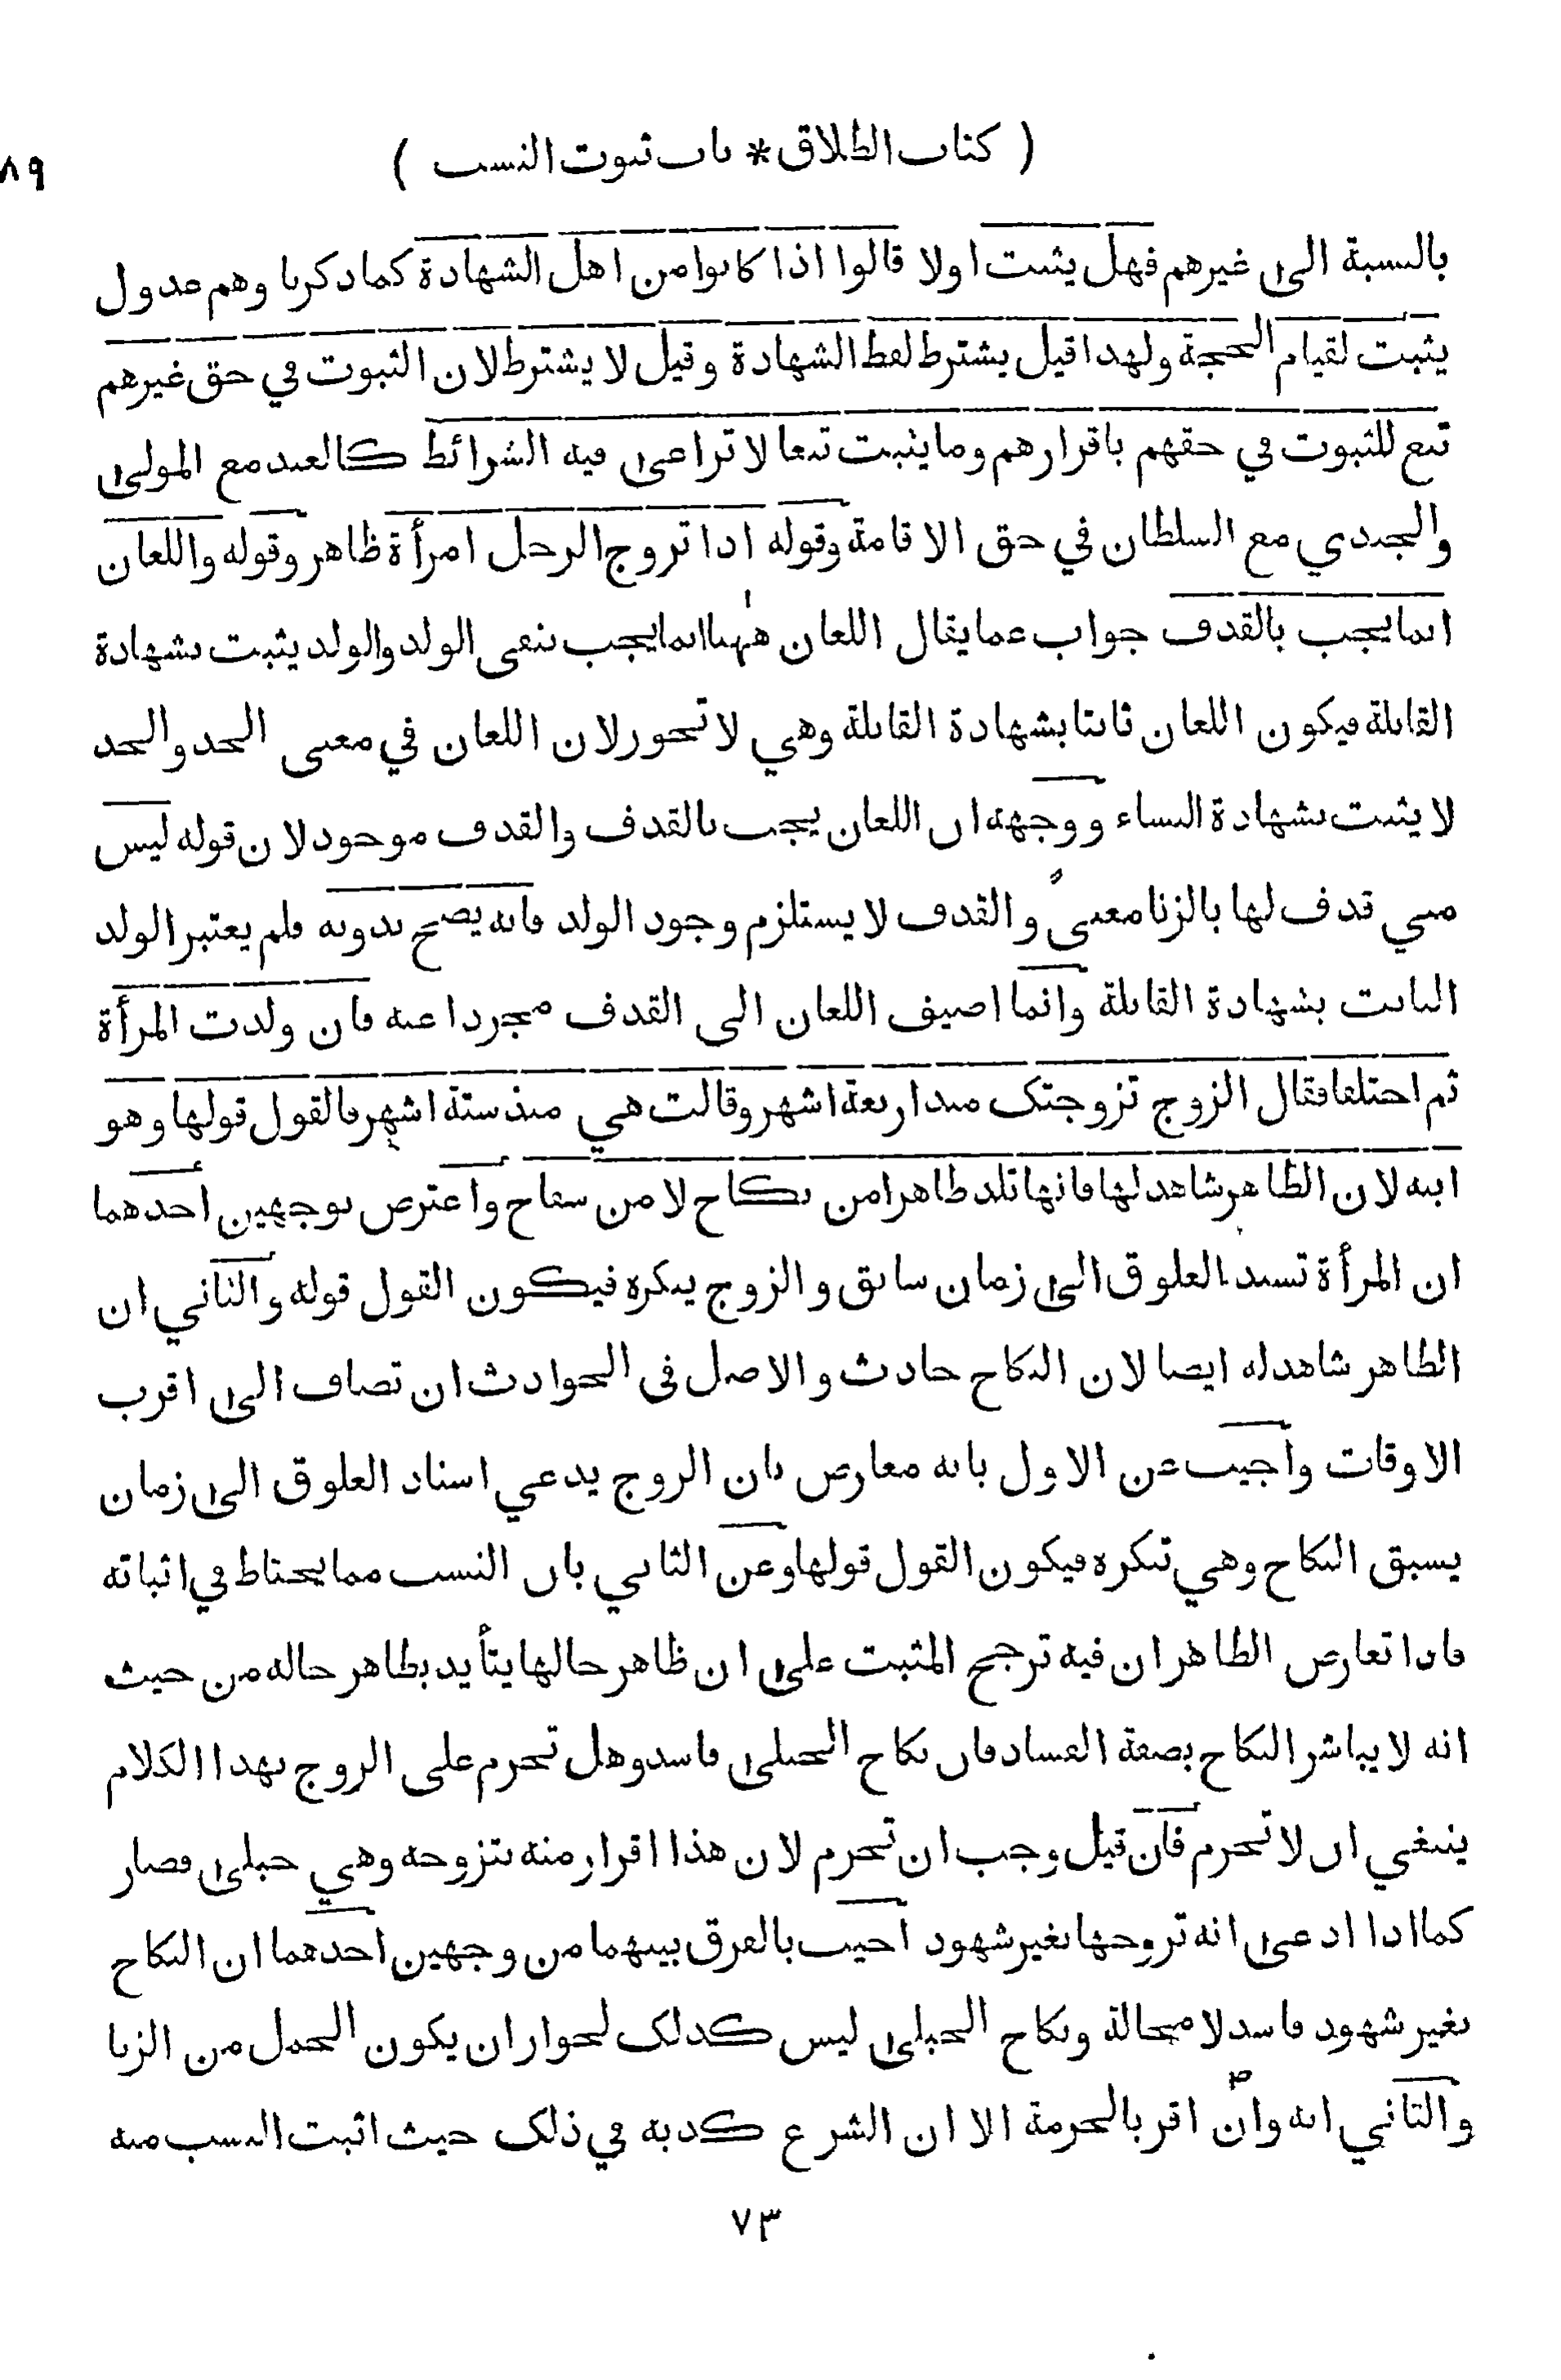 ( كتاب الطلاق * باب ثبوت النسب )
٨٩
بالنسبة الى غيرهم فهل يثبت اولا قالوا اذا كانوا من اهل الشهادة كما ذكرنا وهم عدول
يثبت لقيام الحجة ولهذا قيل يشترط لفظ الشهادة وقيل لا يشترط لان الثبوت في حق غيرهم
تبع للثبوت في حقهم باقرارهم وما يثبت تبعا لا تراعى فيه الشرائط كالعبد مع المولى
والجندي مع السلطان في حق الاقامة وقوله اذا تزوج الرجل امرأة ظاهر وقوله واللعان
انما يجب بالقذف جواب عما يقال اللعان ههنا انما يجب بنفى الولد والولد يثبت بشهادة
القابلة فيكون اللعان ثابتا بشهادة القابلة وهي لا تجوز لان اللعان في معنى الحد والحد
لا يثبت بشهادة النساء ووجهه ان اللعان يجب بالقذف والقذف موجود لان قوله ليس
منى قذف لها بالزنا معنىً والقذف لا يستلزم وجود الولد فانه يصح بدونه فلم يعتبر الولد
الثابت بشهادة القابلة وانما اضيف اللعان الى القذف مجردا عنه فان ولدت المرأة
ثم اختلفا فقال الزوج تزوجتك منذ اربعة اشهر وقالت هي منذ ستة اشهر فالقول قولها وهو
ابنه لان الظاهر شاهد لها فانها تلد ظاهرا من نكاح لا من سفاح واعترض بوجهين احدهما
ان المرأة تسند العلوق الى زمان سابق والزوج ينكره فيكون القول قوله والثاني ان
الظاهر شاهد له ايضا لان النكاح حادث والاصل فى الحوادث ان تضاف الى اقرب
الاوقات واجيب عن الاول بانه معارض بان الزوج يدعي اسناد العلوق الى زمان
يسبق النكاح وهي تنكره فيكون القول قولها وعن الثاني بان النسب مما يحتاط في اثباته
فاذا تعارض الظاهران فيه ترجح المثبت على ان ظاهر حالها يتأيد بظاهر حاله من حيث
انه لا يباشر النكاح بصفة الفساد فان نكاح الحبلى فاسد وهل تحرم على الزوج بهذا الكلام
ينبغي ان لا تحرم فان قيل وجب ان تحرم لان هذا اقرار منه بتزوجه وهي حبلى فصار
كما اذا ادعى انه تزوجها بغير شهود اجيب بالفرق بينهما من وجهين احدهما ان النكاح
بغير شهود فاسد لا محالة ونكاح الحبلى ليس كذلك لجواز ان يكون الحمل من الزنا
والثاني انه وان اقر بالحرمة الا ان الشرع كذبه في ذلك حيث اثبت النسب منه
٧٣